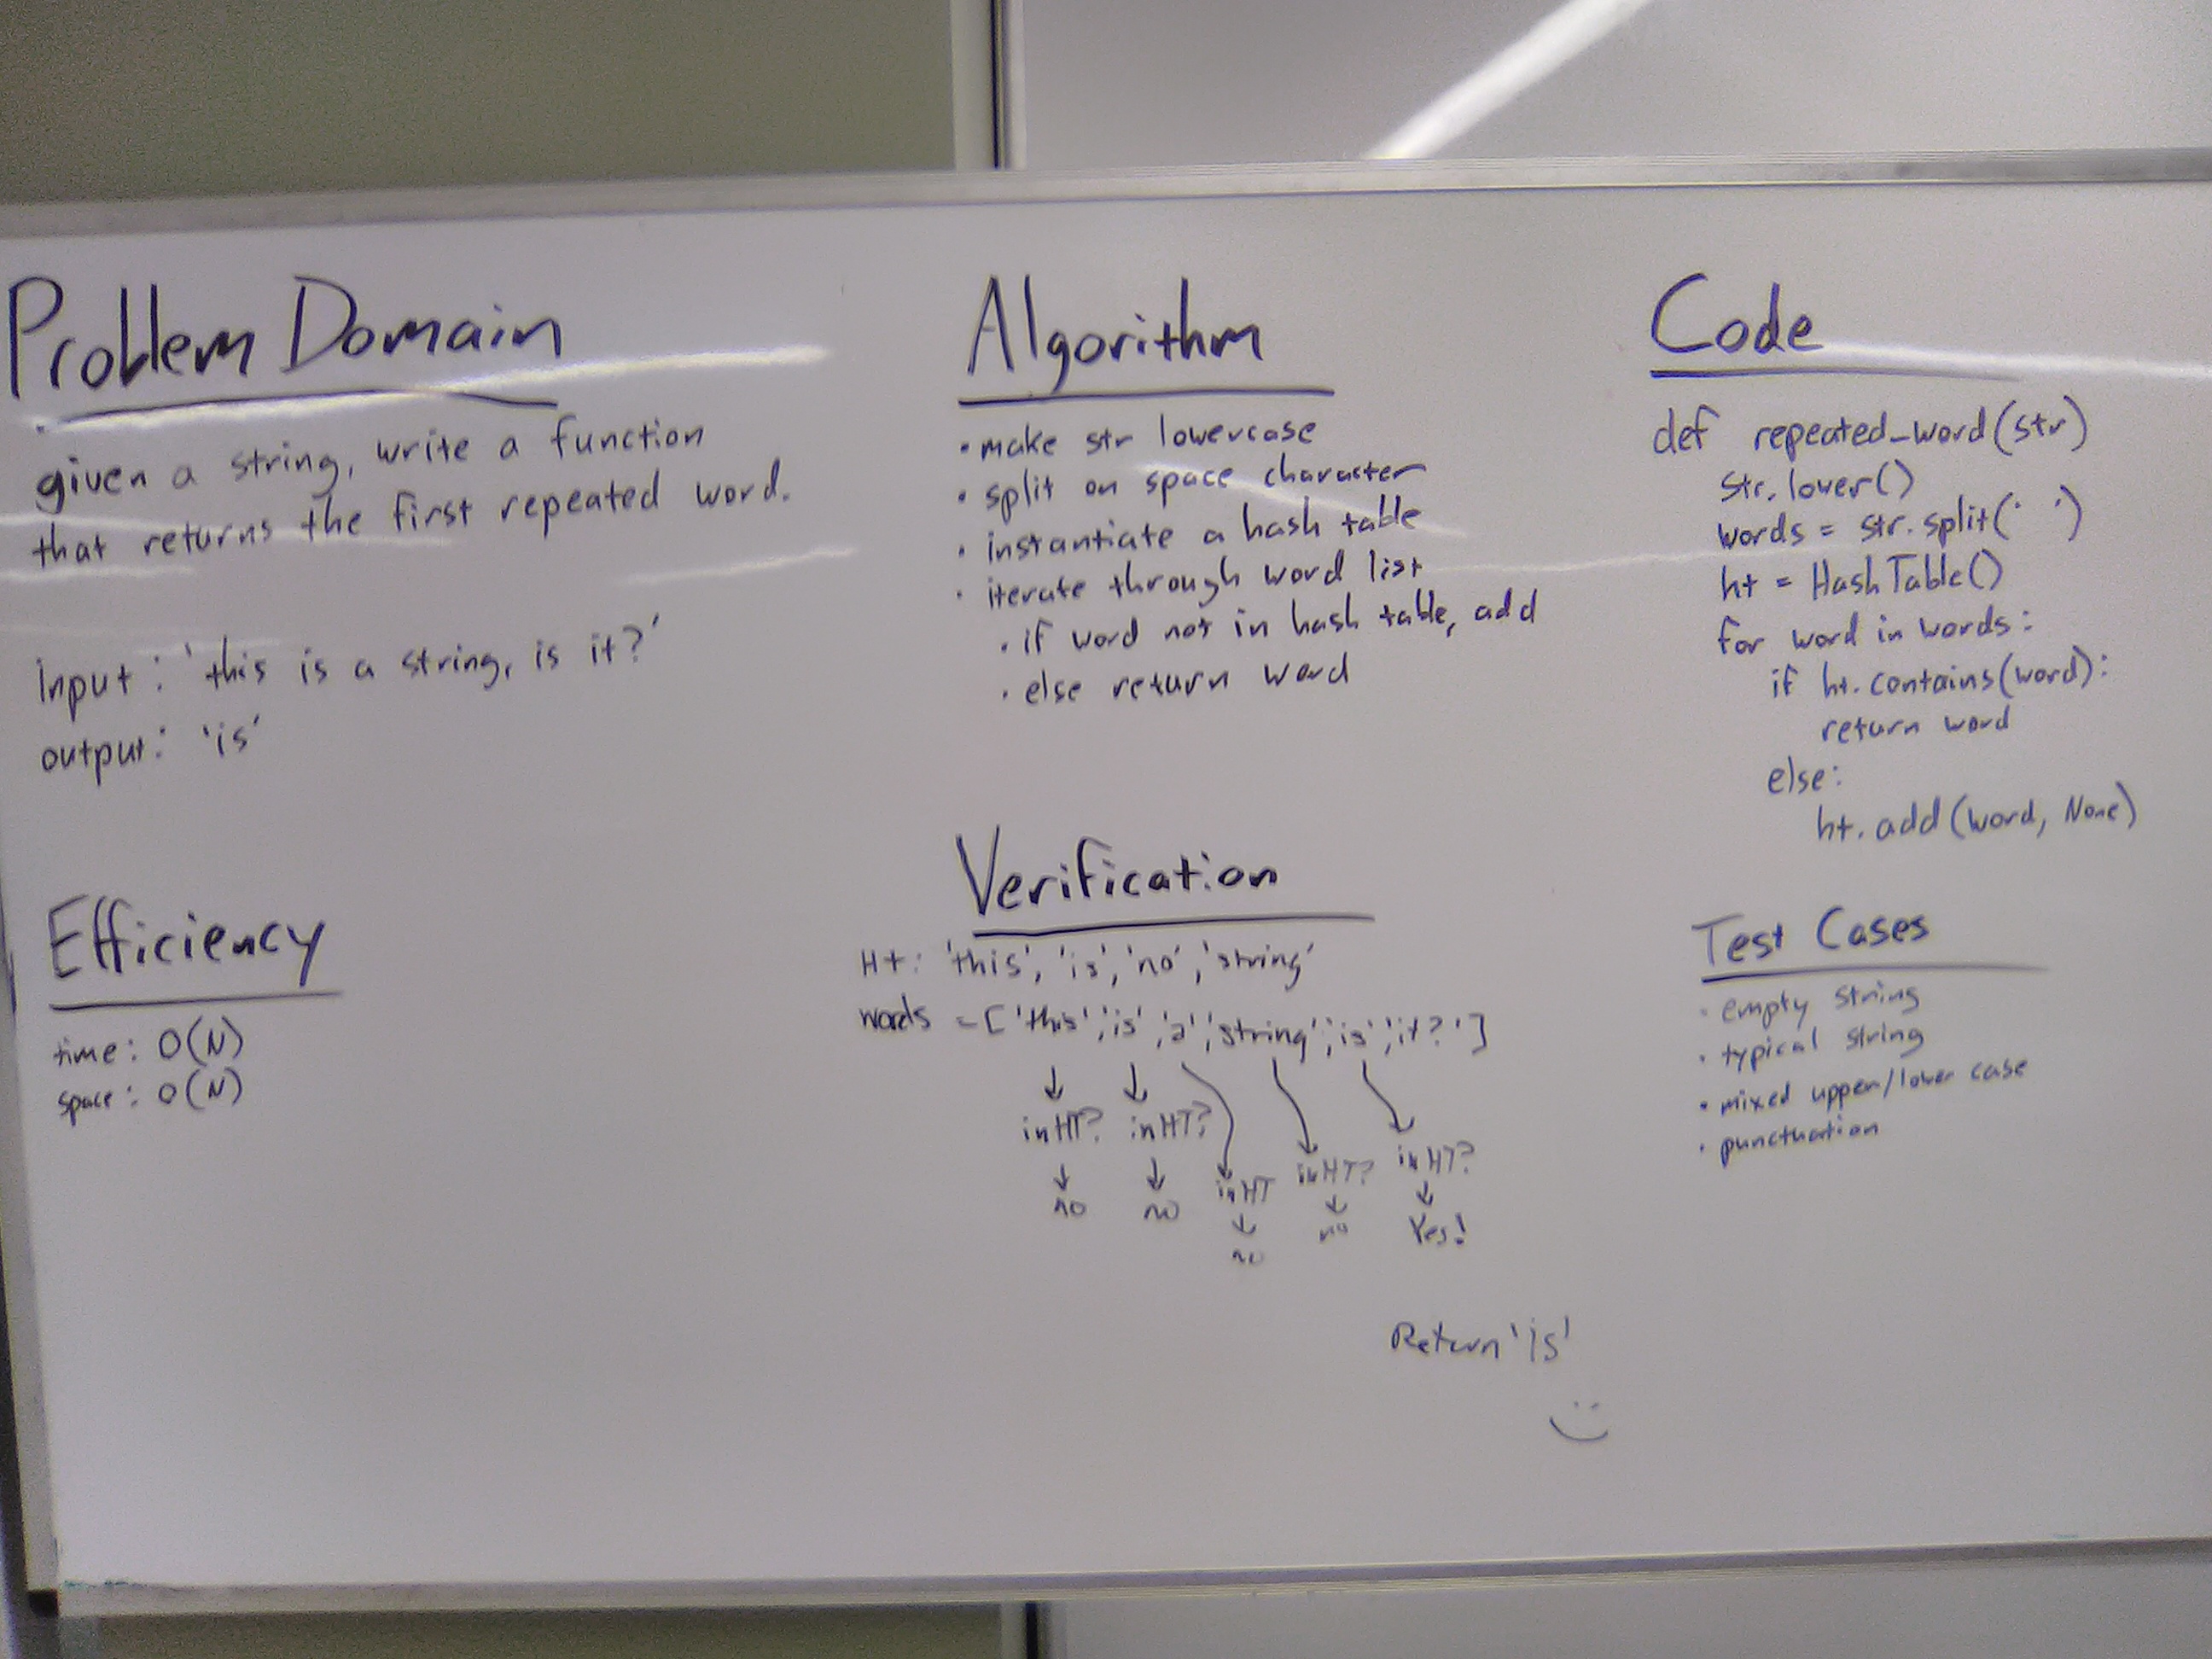 Problem Domain
given a string, write a function
that returns the first repeated word.
input: 'this is a string, is it?'
output: 'is'
Efficiency
time: O(N)
space: O(N)
Algorithm
• make str lowercase
• split on space character
• instantiate a hash table
• iterate through word list
• if word not in hash table, add
• else return word
Verification
Ht: 'this', 'is', 'no', 'string'
words = ['this','is','a','string','is','it?']
inHT? inHT? inHT inHT? inHT?
no no no no Yes!
Return 'is'
Code
def repeated_word(str)
str.lower()
words = str.split(' ')
ht = HashTable()
for word in words:
if ht.contains(word):
return word
else:
ht.add(word, None)
Test Cases
• empty string
• typical string
• mixed upper/lower case
• punctuation